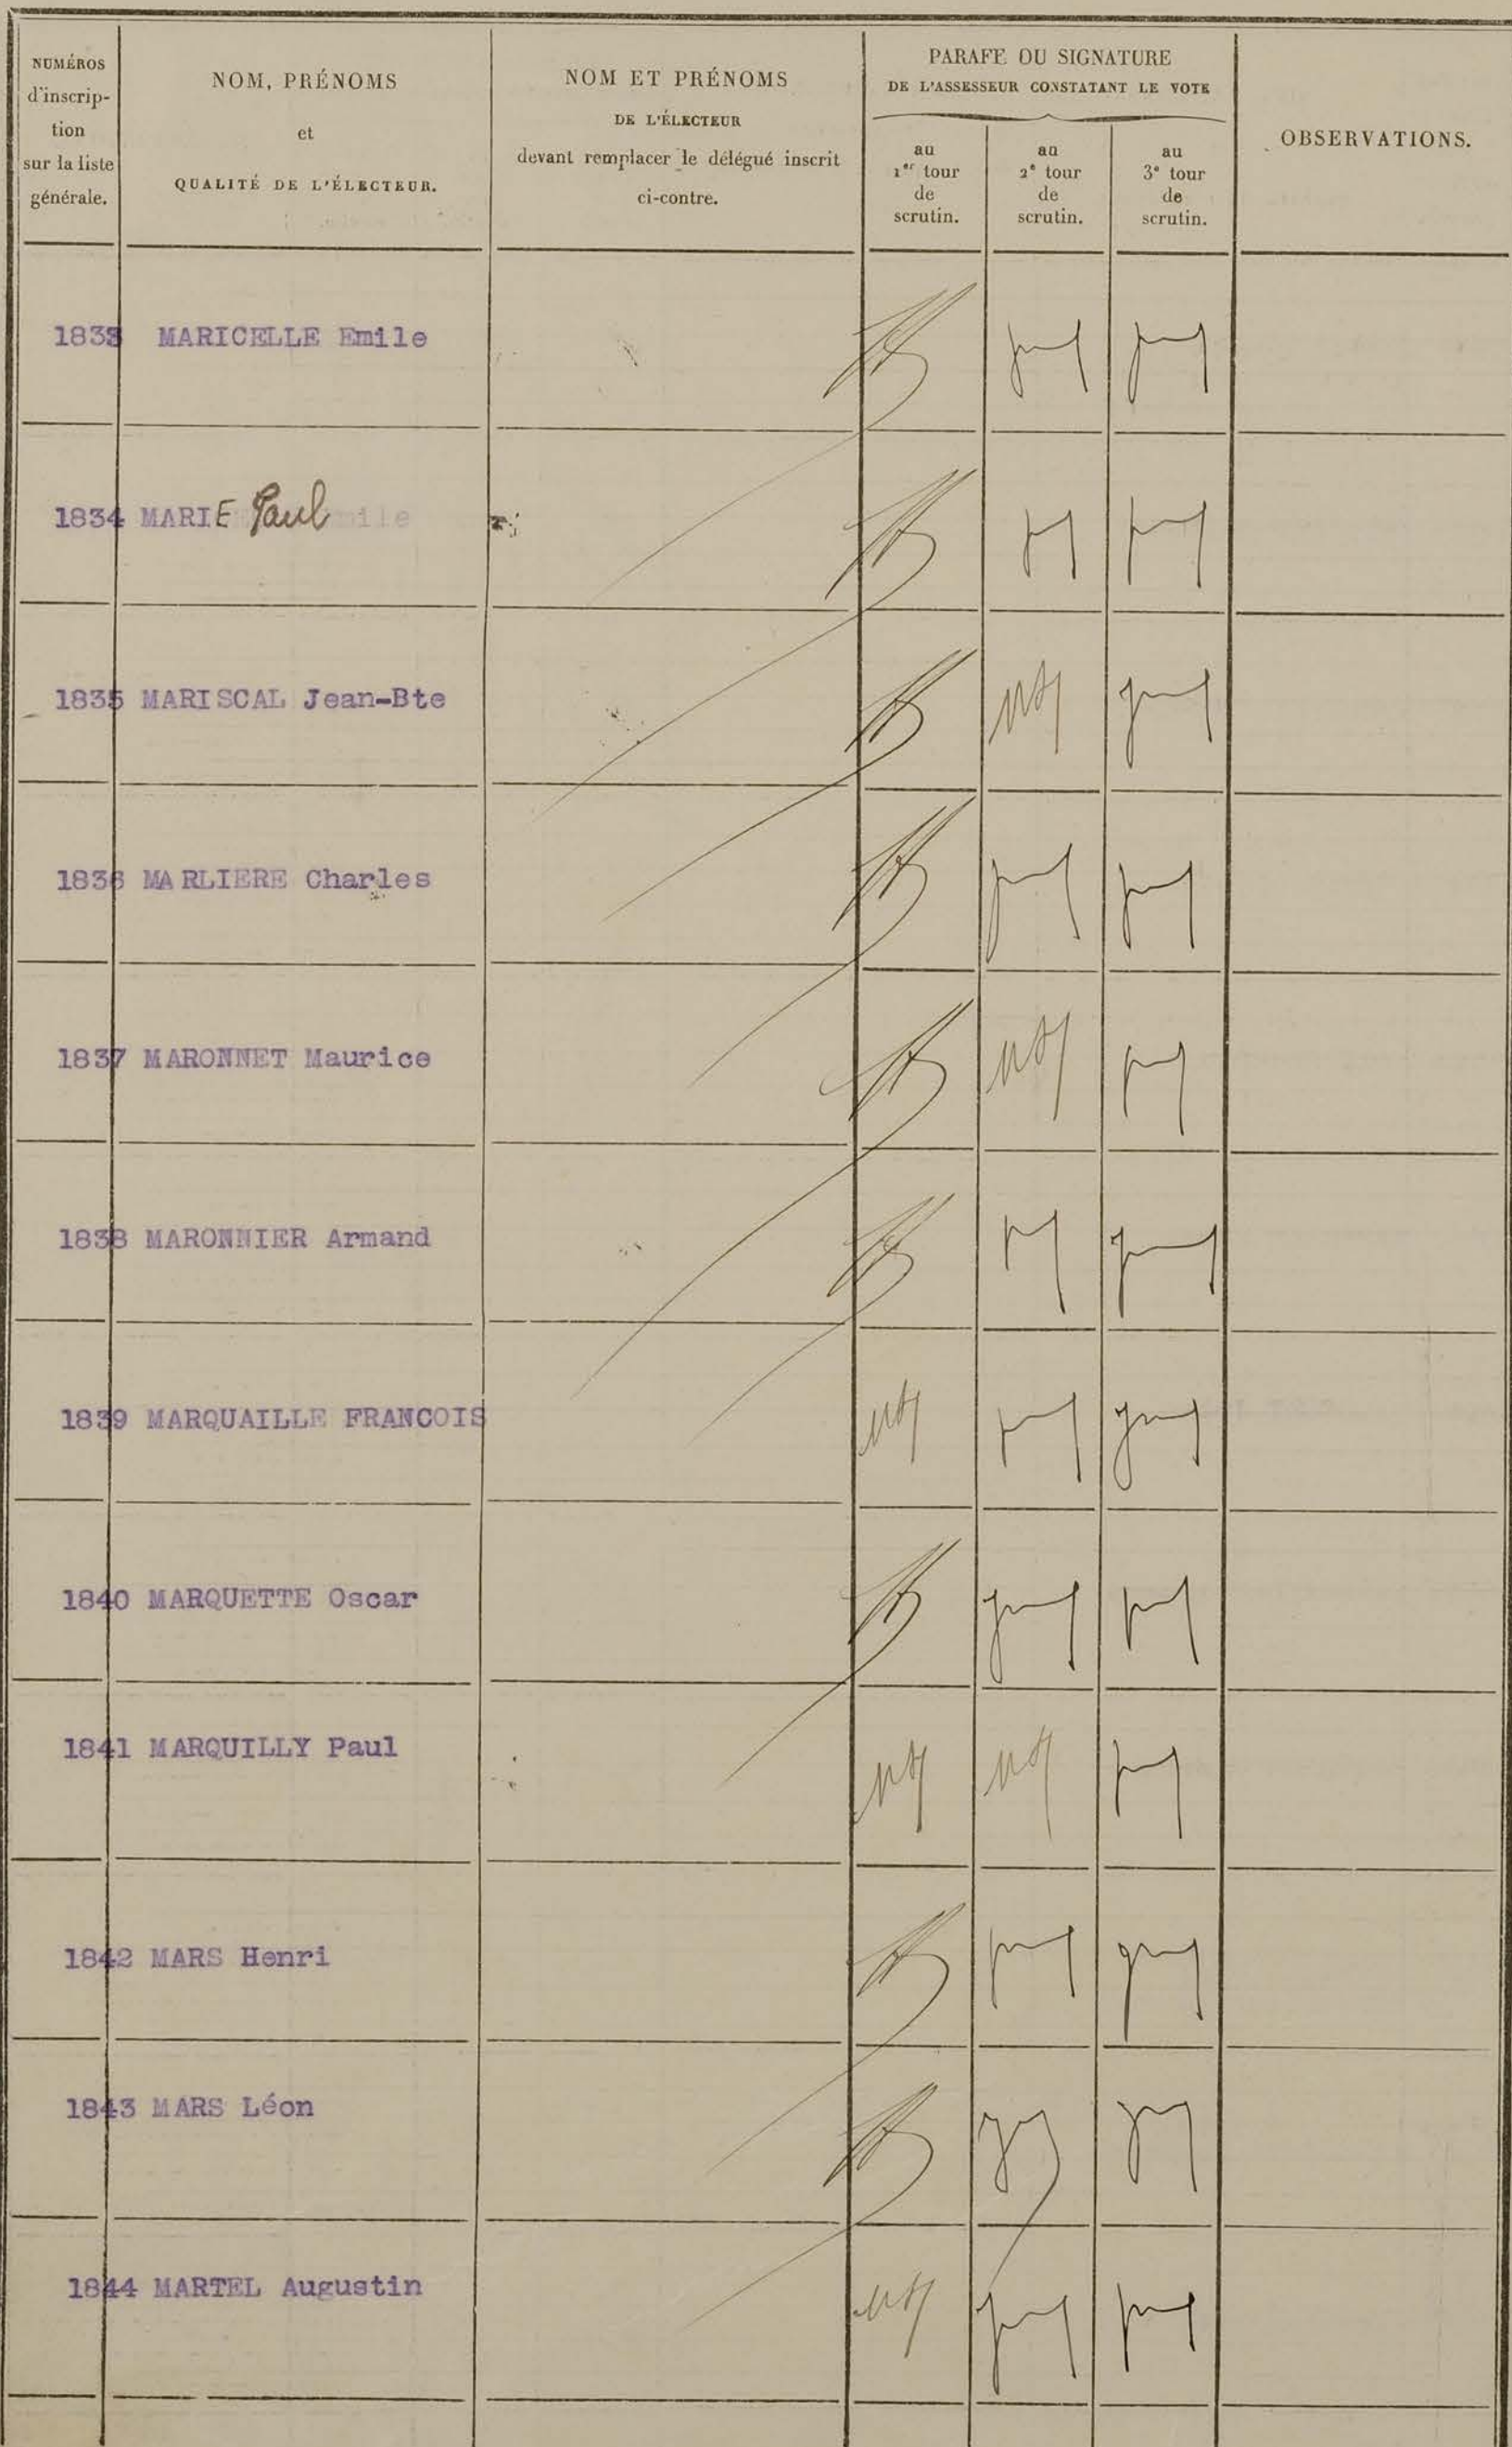 NUMÉROS
d'inscrip-
tion
sur la liste
générale.
NOM, PRÉNOMS
et
QUALITÉ DE L'ÉLECTEUR.
NOM ET PRÉNOMS
DE L'ÉLECTEUR
devant remplacer le délégué inscrit
ci-contre.
PARAFE OU SIGNATURE
DE L'ASSESSEUR CONSTATANT LE VOTE
au
1er tour
de
scrutin.
au
2e tour
de
scrutin.
au
3e tour
de
scrutin.
OBSERVATIONS.
1833 MARICELLE Emile
1834 MARIE Paul
1835 MARISCAL Jean-Bte
1836 MARLIERE Charles
1837 MARONNET Maurice
1838 MARONNIER Armand
1839 MARQUAILLE FRANCOIS
1840 MARQUETTE Oscar
1841 MARQUILLY Paul
1842 MARS Henri
1843 MARS Léon
1844 MARTEL Augustin